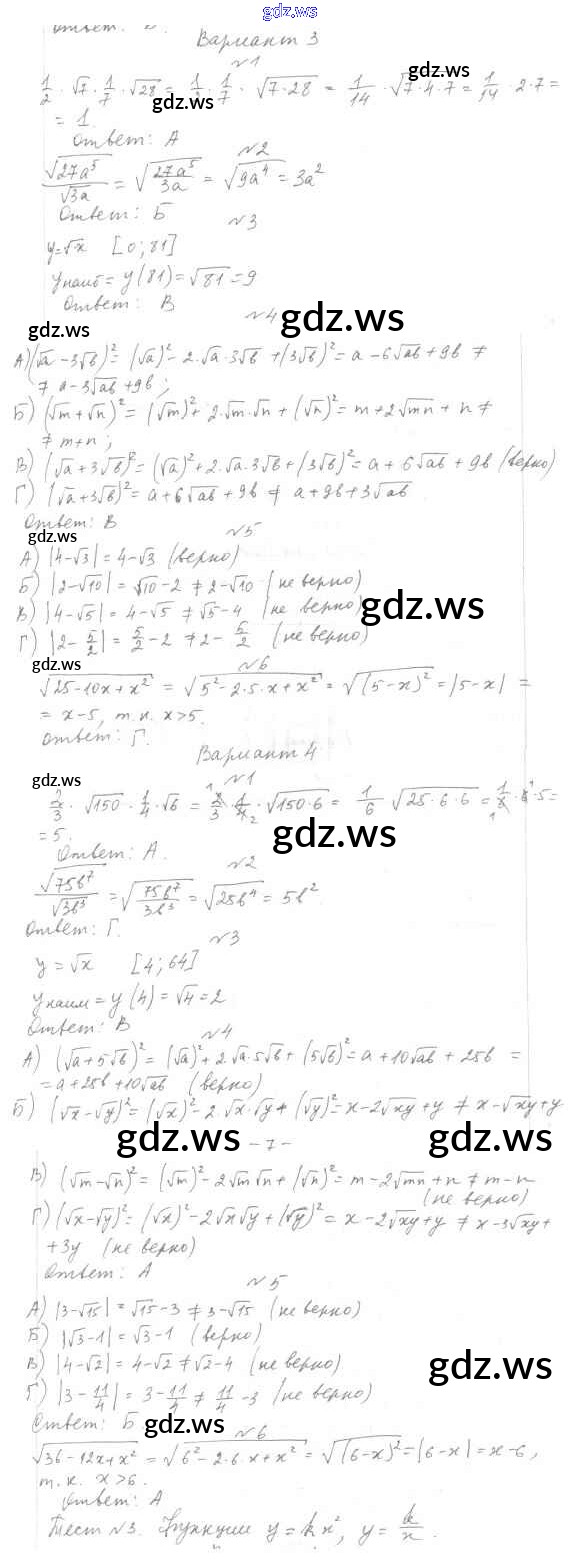 gdz.ws
Ответ: В.
Вариант 3
№1
1/2 · √7 · 1/7 · √28 = 1/2 · 1/7 · √(7·28) = 1/14 · √(7·4·7) = 1/14 · 2·7 =
gdz.ws
= 1.
gdz.ws
Ответ: А
№2
√(27a⁵)/√(3a) = √(27a⁵/3a) = √(9a⁴) = 3a²
Ответ: Б
№3
y=√x [0; 81]
yнаиб = y(81) = √81 = 9
Ответ: В
№4
gdz.ws
gdz.ws
А) (√a - 3√b)² = (√a)² - 2·√a·3√b + (3√b)² = a - 6√ab + 9b ≠
≠ a - 3√ab + 9b;
Б) (√m + √n)² = (√m)² + 2·√m·√n + (√n)² = m + 2√mn + n ≠
≠ m+n;
В) (√a + 3√b)² = (√a)² + 2·√a·3√b + (3√b)² = a + 6√ab + 9b (верно)
Г) (√a + 3√b)² = a + 6√ab + 9b ≠ a + 9b + 3√ab.
Ответ: В
gdz.ws
№5
А) |4-√3| = 4-√3 (верно)
Б) |2-√10| = √10-2 ≠ 2-√10 (не верно)
В) |4-√5| = 4-√5 ≠ √5-4 (не верно)
gdz.ws
Г) |2 - 5/2| = 5/2 - 2 ≠ 2 - 5/2 (не верно)
gdz.ws
№6
√(25-10x+x²) = √(5²-2·5·x+x²) = √((5-x)²) = |5-x| =
= x-5, т.к. x>5.
Ответ: Г.
Вариант 4
gdz.ws
№1
2/3 · √150 · 1/4 · √6 = 2/3 · 1/4 · √(150·6) = 1/6 √(25·6·6) = 1/6 · 6·5 =
= 5.
gdz.ws
Ответ: А.
№2
√(75b⁷)/√(3b³) = √(75b⁷/3b³) = √(25b⁴) = 5b².
Ответ: Г.
№3
y = √x [4; 64]
yнаим = y(4) = √4 = 2
Ответ: В
№4
А) (√a + 5√b)² = (√a)² + 2·√a·5√b + (5√b)² = a + 10√ab + 25b =
= a + 25b + 10√ab (верно)
Б) (√x - √y)² = (√x)² - 2√x·√y + (√y)² = x - 2√xy + y ≠ x - √xy + y
gdz.ws
- 7 -
gdz.ws
В) (√m - √n)² = (√m)² - 2√m√n + (√n)² = m - 2√mn + n ≠ m - n
(не верно)
Г) (√x - √y)² = (√x)² - 2√x√y + (√y)² = x - 2√xy + y ≠ x - 3√xy +
+ 3y (не верно)
Ответ: А
№5
А) |3-√15| = √15-3 ≠ 3-√15 (не верно)
Б) |√3-1| = √3-1 (верно)
В) |4-√2| = 4-√2 ≠ √2-4 (не верно)
gdz.ws
Г) |3 - 11/4| = 3 - 11/4 ≠ 11/4 - 3 (не верно)
Ответ: Б
gdz.ws
№6
√(36-12x+x²) = √(6²-2·6·x+x²) = √((6-x)²) = |6-x| = x-6,
т.к. x>6.
Ответ: А
Тест №3. Функции y = kx², y = k/x.